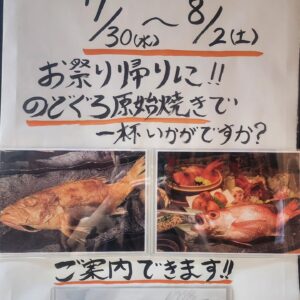 7/30(水)～8/2(土)
お祭り帰りに!!
のどぐろ原始焼きで
一杯いかがですか?
ご案内できます!!